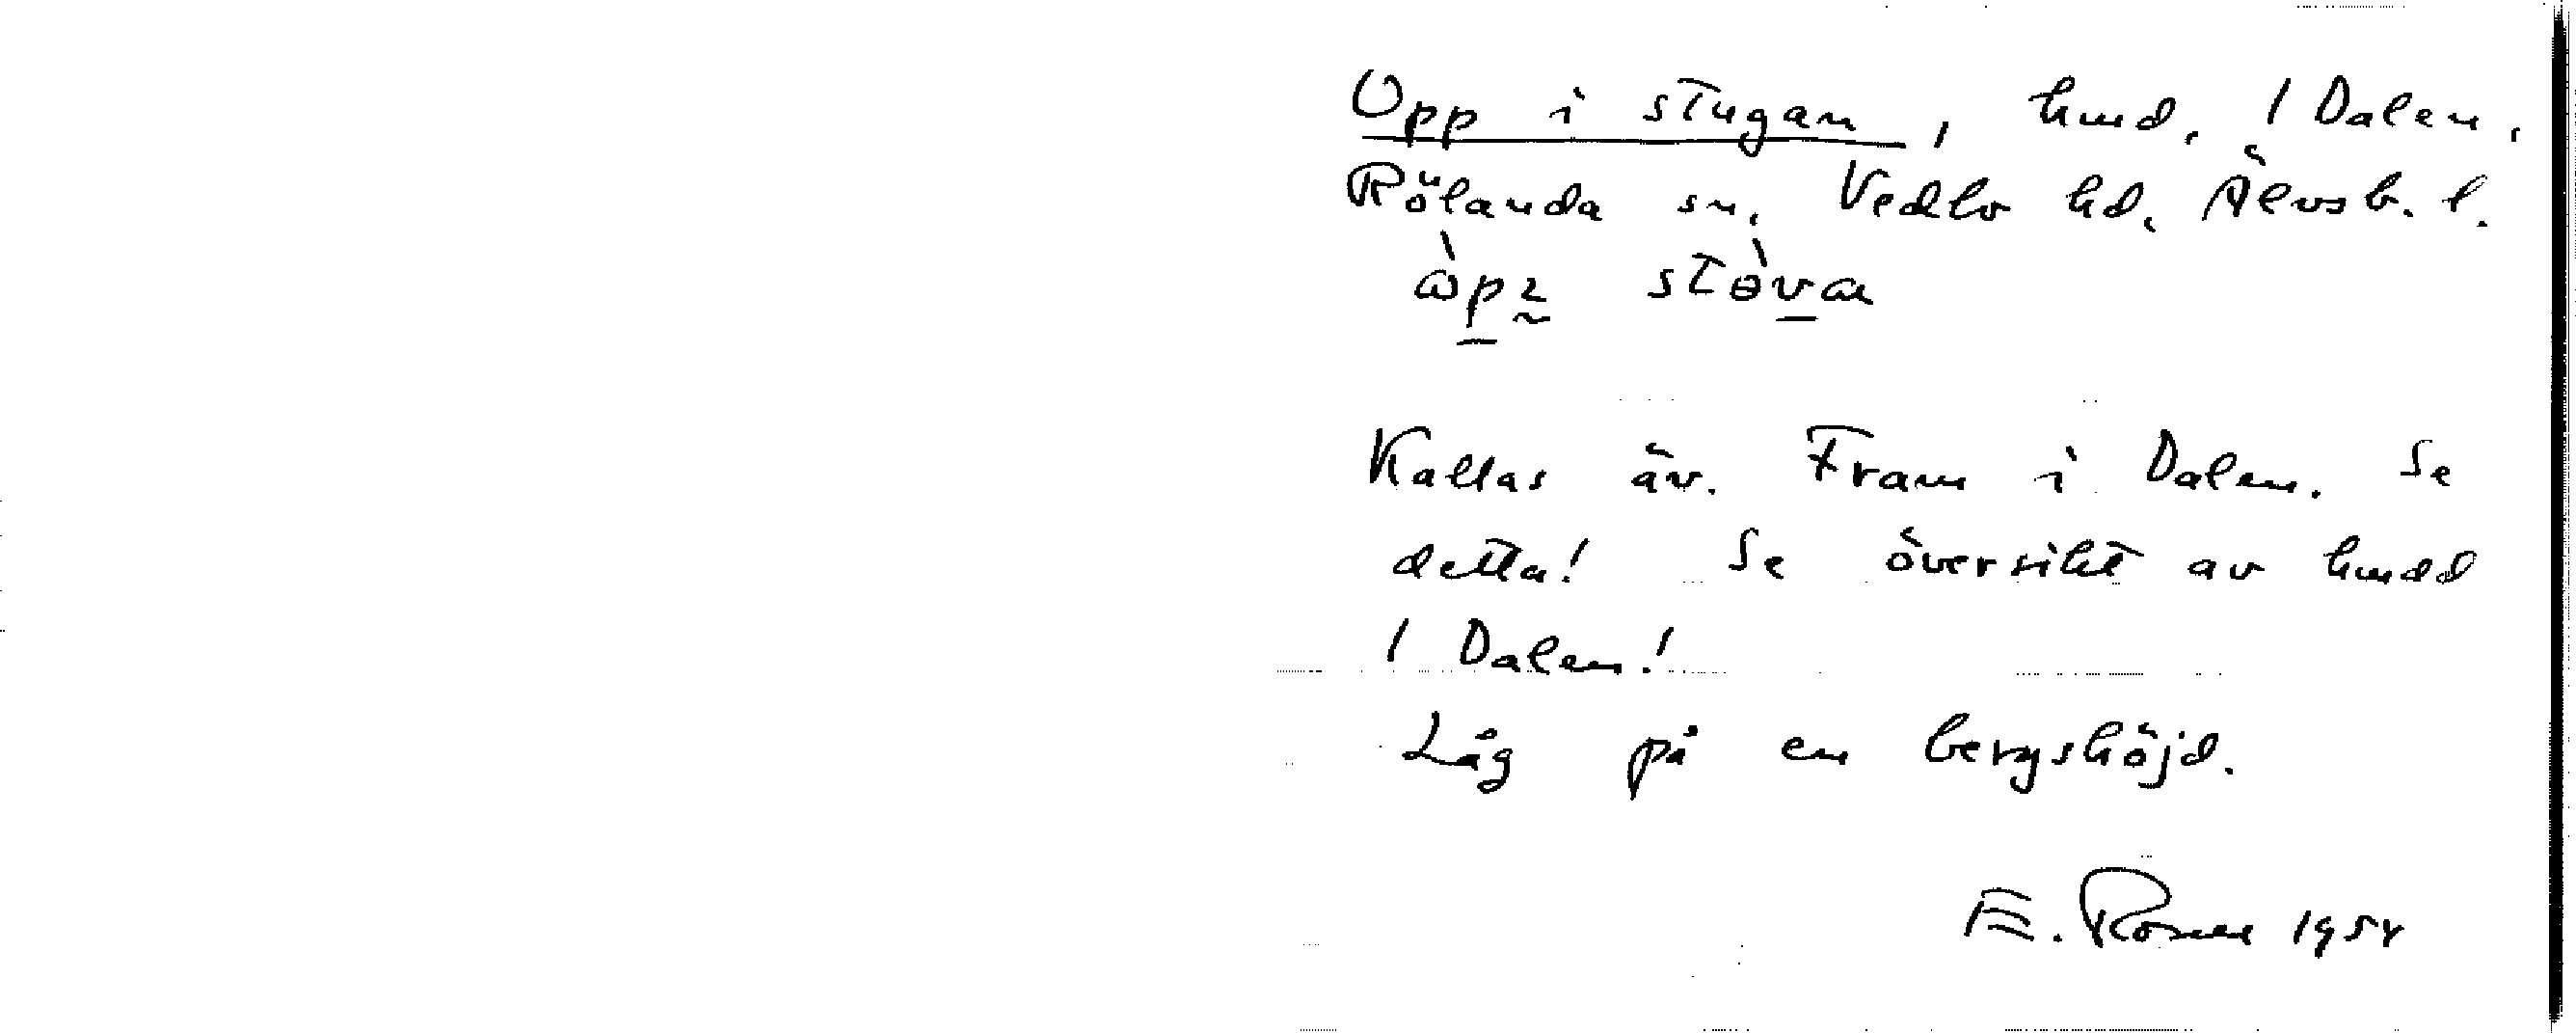 Opp i stugan, hmd. I Dalen,
Rölanda sn, Vedbo hd, Älvsb. l.
Kallas äv. Fram i Dalen. Se
detta! Se översikt av hmdd
I Dalen!
Låg på en bergshöjd.
E. 1954